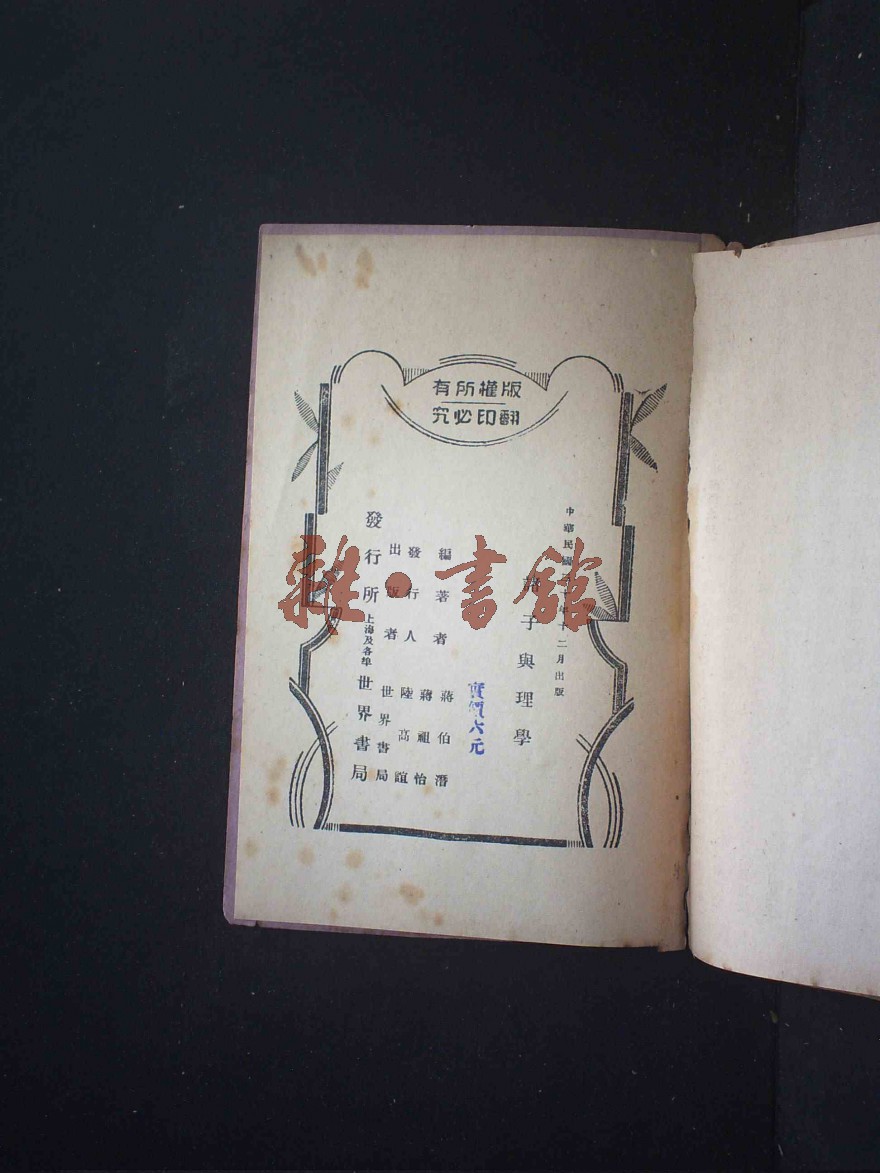 版權所有
翻印必究
中華民國三十年十二月出版
諸子與理學
實價六元
編著者 蔣伯潛
蔣祖怡
發行人 陸高誼
出版者 世界書局
發行所 上海及各埠 世界書局
雜·書館